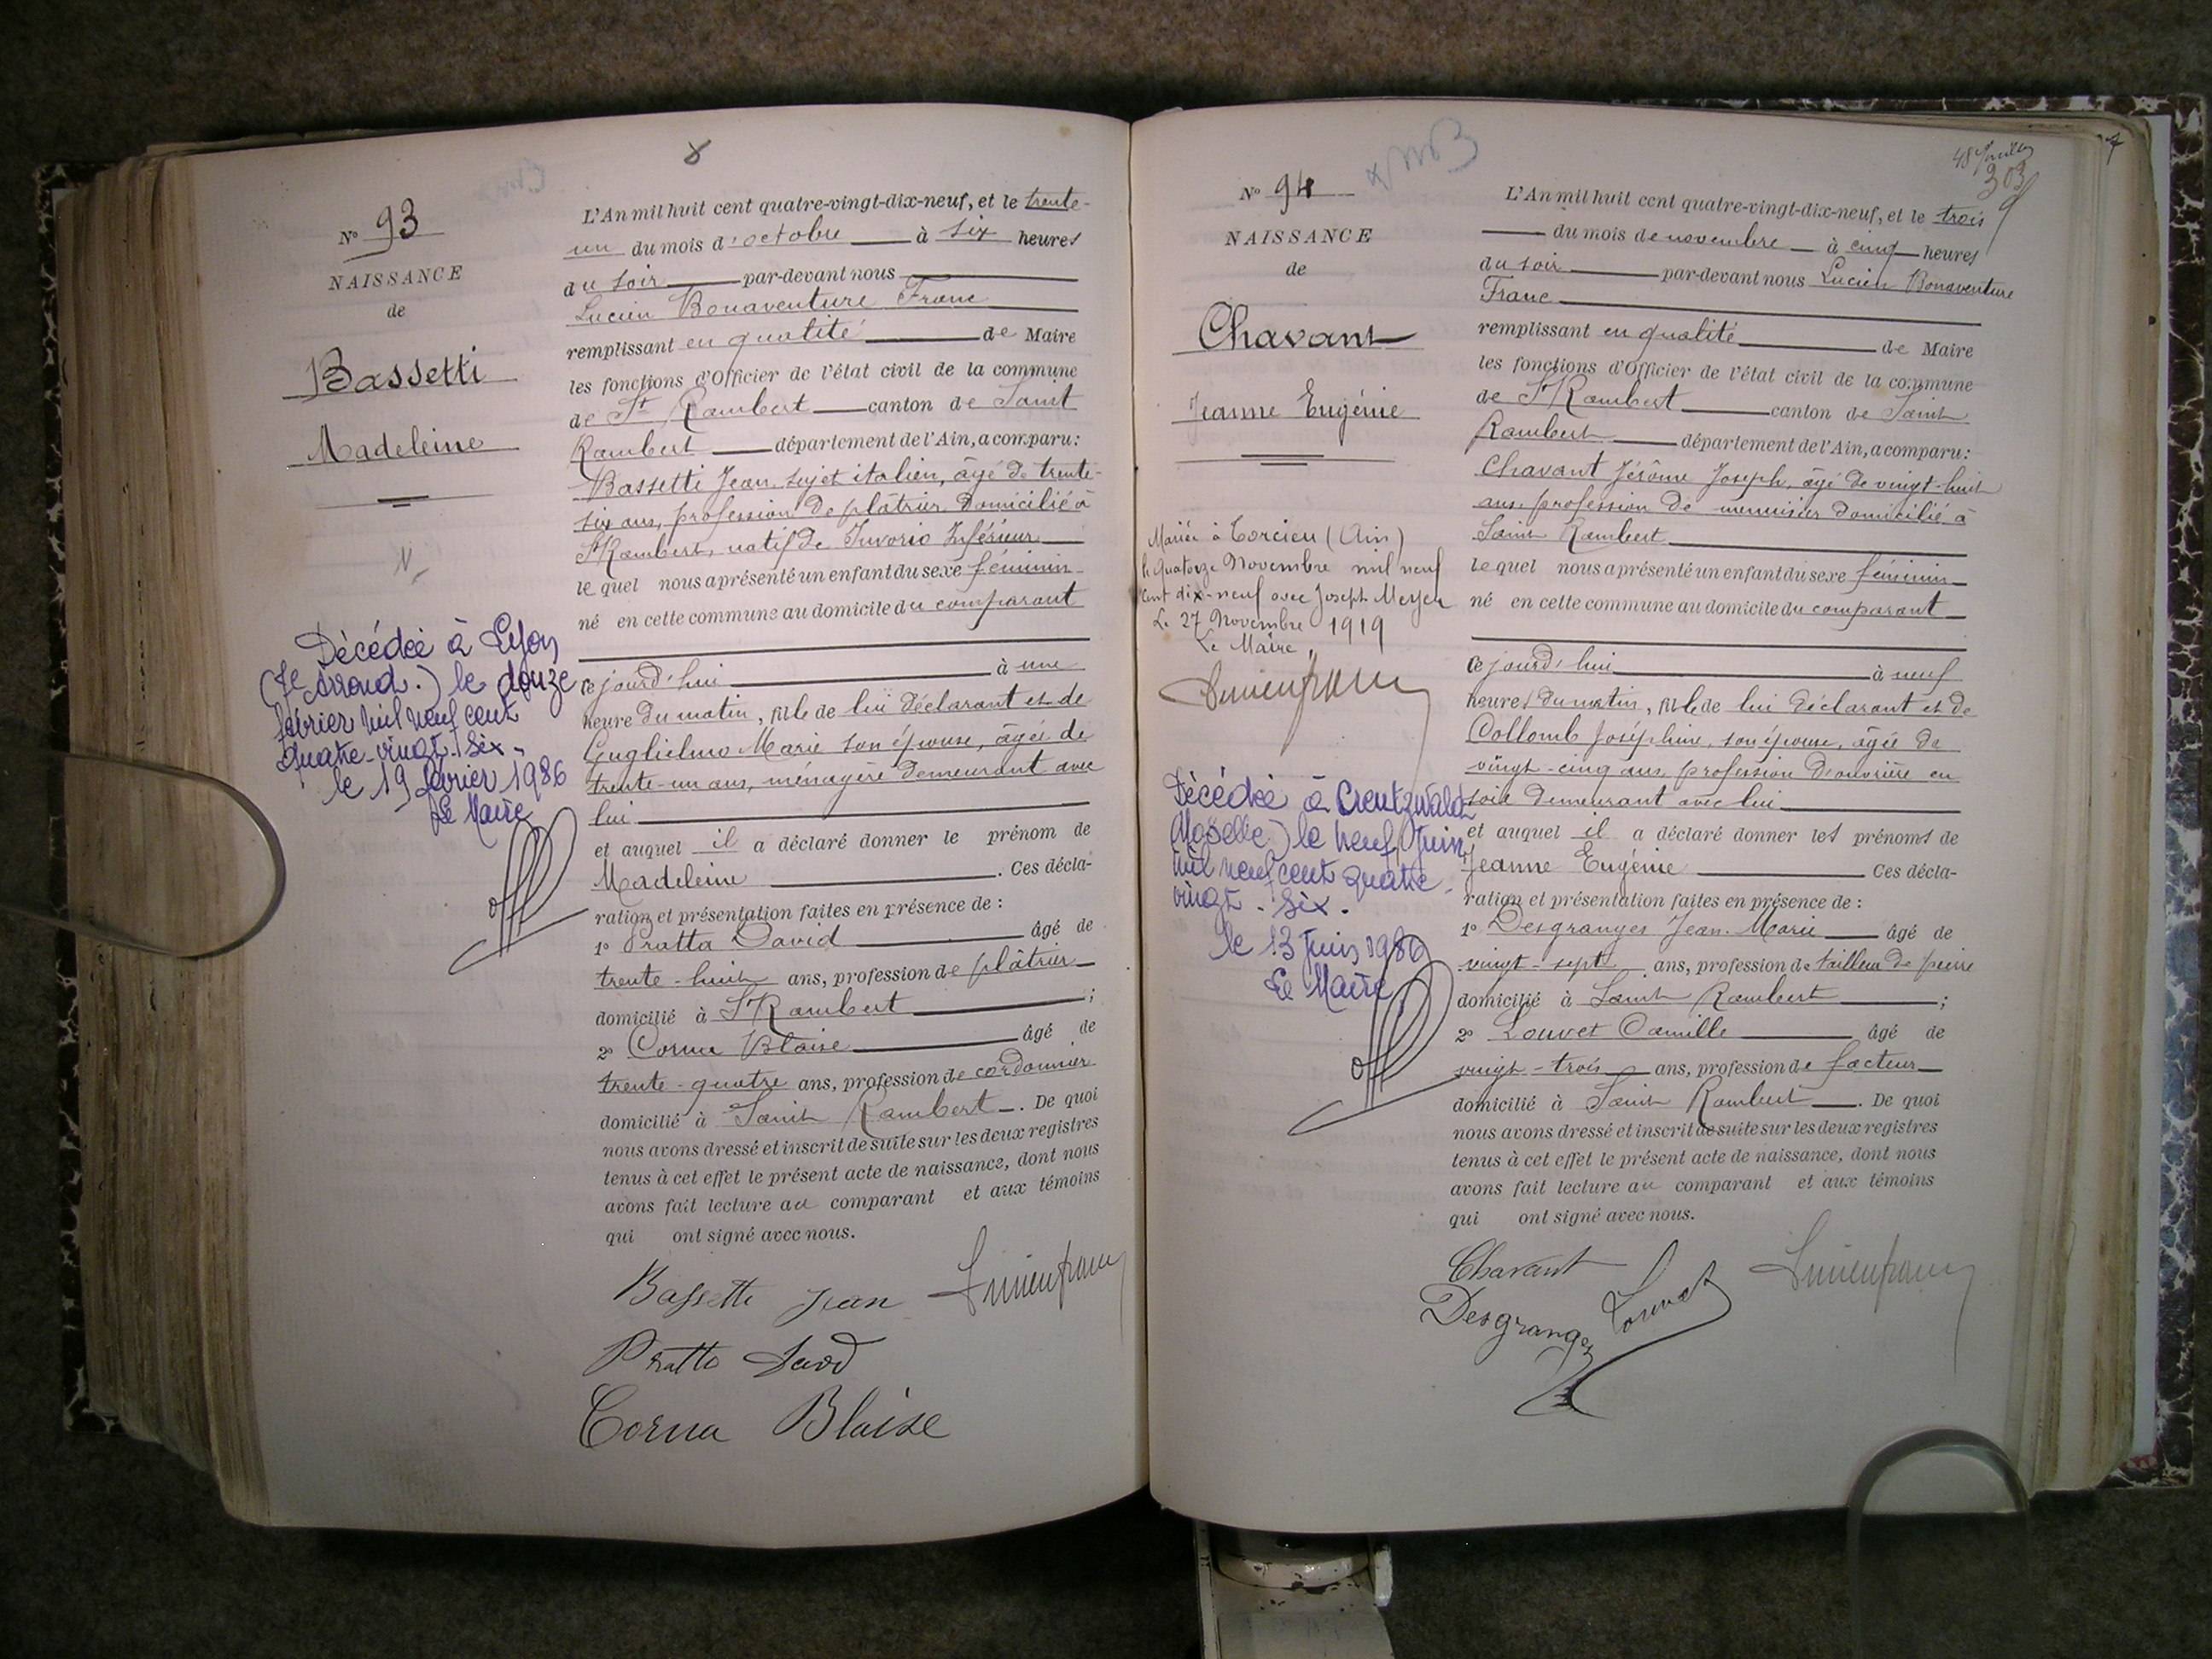 8
N° 93
NAISSANCE
de
Bassetti
Madeleine
N
Décédée à Lyon
(7e Arrond.) le douze
février mil neuf cent
quatre-vingt-six.
le 19 février 1986
Le Maire
L'An mil huit cent quatre-vingt-dix-neuf, et le trente-
un du mois d'octobre à six heures
du soir par-devant nous
Lucien Bonaventure Franc
remplissant en qualité de Maire
les fonctions d'Officier de l'état civil de la commune
de St Rambert canton de Saint
Rambert département de l'Ain, a comparu:
Bassetti Jean, sujet italien, âgé de trente-
six ans, profession de plâtrier domicilié à
St Rambert, natif de Invorio Inférieur
le quel nous a présenté un enfant du sexe féminin
né en cette commune au domicile du comparant
ce jourd'hui à une
heure du matin, fille de lui déclarant et de
Guglielmo Marie son épouse, âgée de
trente-un ans, ménagère demeurant avec
lui
et auquel il a déclaré donner le prénom de
Madeleine . Ces décla-
ration et présentation faites en présence de :
1° Pratta David âgé de
trente-huit ans, profession de plâtrier
domicilié à St Rambert ;
2° Corna Blaise âgé de
trente-quatre ans, profession de cordonnier
domicilié à Saint Rambert . De quoi
nous avons dressé et inscrit de suite sur les deux registres
tenus à cet effet le présent acte de naissance, dont nous
avons fait lecture au comparant et aux témoins
qui ont signé avec nous.
Bassetti Jean Lucien Franc
Pratto Davd
Corna Blaise
303
N° 94
NAISSANCE
de
Chavant
Jeanne Eugénie
Mariée à Torcieu (Ain)
le quatorze Novembre mil neuf
cent dix-neuf avec Joseph Meyer
Le 27 Novembre 1919
Le Maire,
Lucien Franc
Décédée à Creutzwald
(Moselle) le neuf Juin
mil neuf cent quatre-
vingt-six.
le 13 Juin 1986
Le Maire
L'An mil huit cent quatre-vingt-dix-neuf, et le trois
du mois de novembre à cinq heures
du soir par-devant nous Lucien Bonaventure
Franc
remplissant en qualité de Maire
les fonctions d'Officier de l'état civil de la commune
de St Rambert canton de Saint
Rambert département de l'Ain, a comparu:
Chavant Jérôme Joseph, âgé de vingt-huit
ans, profession de menuisier domicilié à
Saint Rambert
le quel nous a présenté un enfant du sexe féminin
né en cette commune au domicile du comparant
ce jourd'hui à neuf
heures du matin, fille de lui déclarant et de
Collomb Joséphine, son épouse, âgée de
vingt-cinq ans, profession d'ouvrière en
soie demeurant avec lui
et auquel il a déclaré donner les prénoms de
Jeanne Eugénie Ces décla-
ration et présentation faites en présence de :
1° Desgranges Jean-Marie âgé de
vingt-sept ans, profession de tailleur de pierre
domicilié à Saint Rambert ;
2° Louvet Camille âgé de
vingt-trois ans, profession de facteur
domicilié à Saint Rambert . De quoi
nous avons dressé et inscrit de suite sur les deux registres
tenus à cet effet le présent acte de naissance, dont nous
avons fait lecture au comparant et aux témoins
qui ont signé avec nous.
Chavant Lucien Franc
Desgranges Louvet